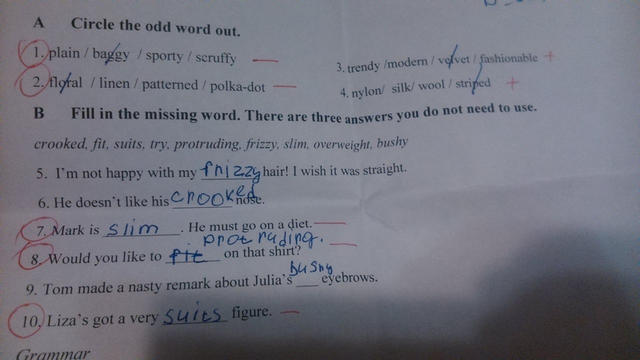 A Circle the odd word out.
1. plain / baggy / sporty / scruffy
3. trendy /modern / velvet / fashionable +
2. floral / linen / patterned / polka-dot
4. nylon/ silk/ wool / striped +
B Fill in the missing word. There are three answers you do not need to use.
crooked, fit, suits, try, protruding, frizzy, slim, overweight, bushy
5. I'm not happy with my frizzy hair! I wish it was straight.
6. He doesn't like his crooked nose.
7. Mark is slim. He must go on a diet.
protruding.
8. Would you like to fit on that shirt?
bushy
9. Tom made a nasty remark about Julia's ___ eyebrows.
10. Liza's got a very suits figure.
Grammar